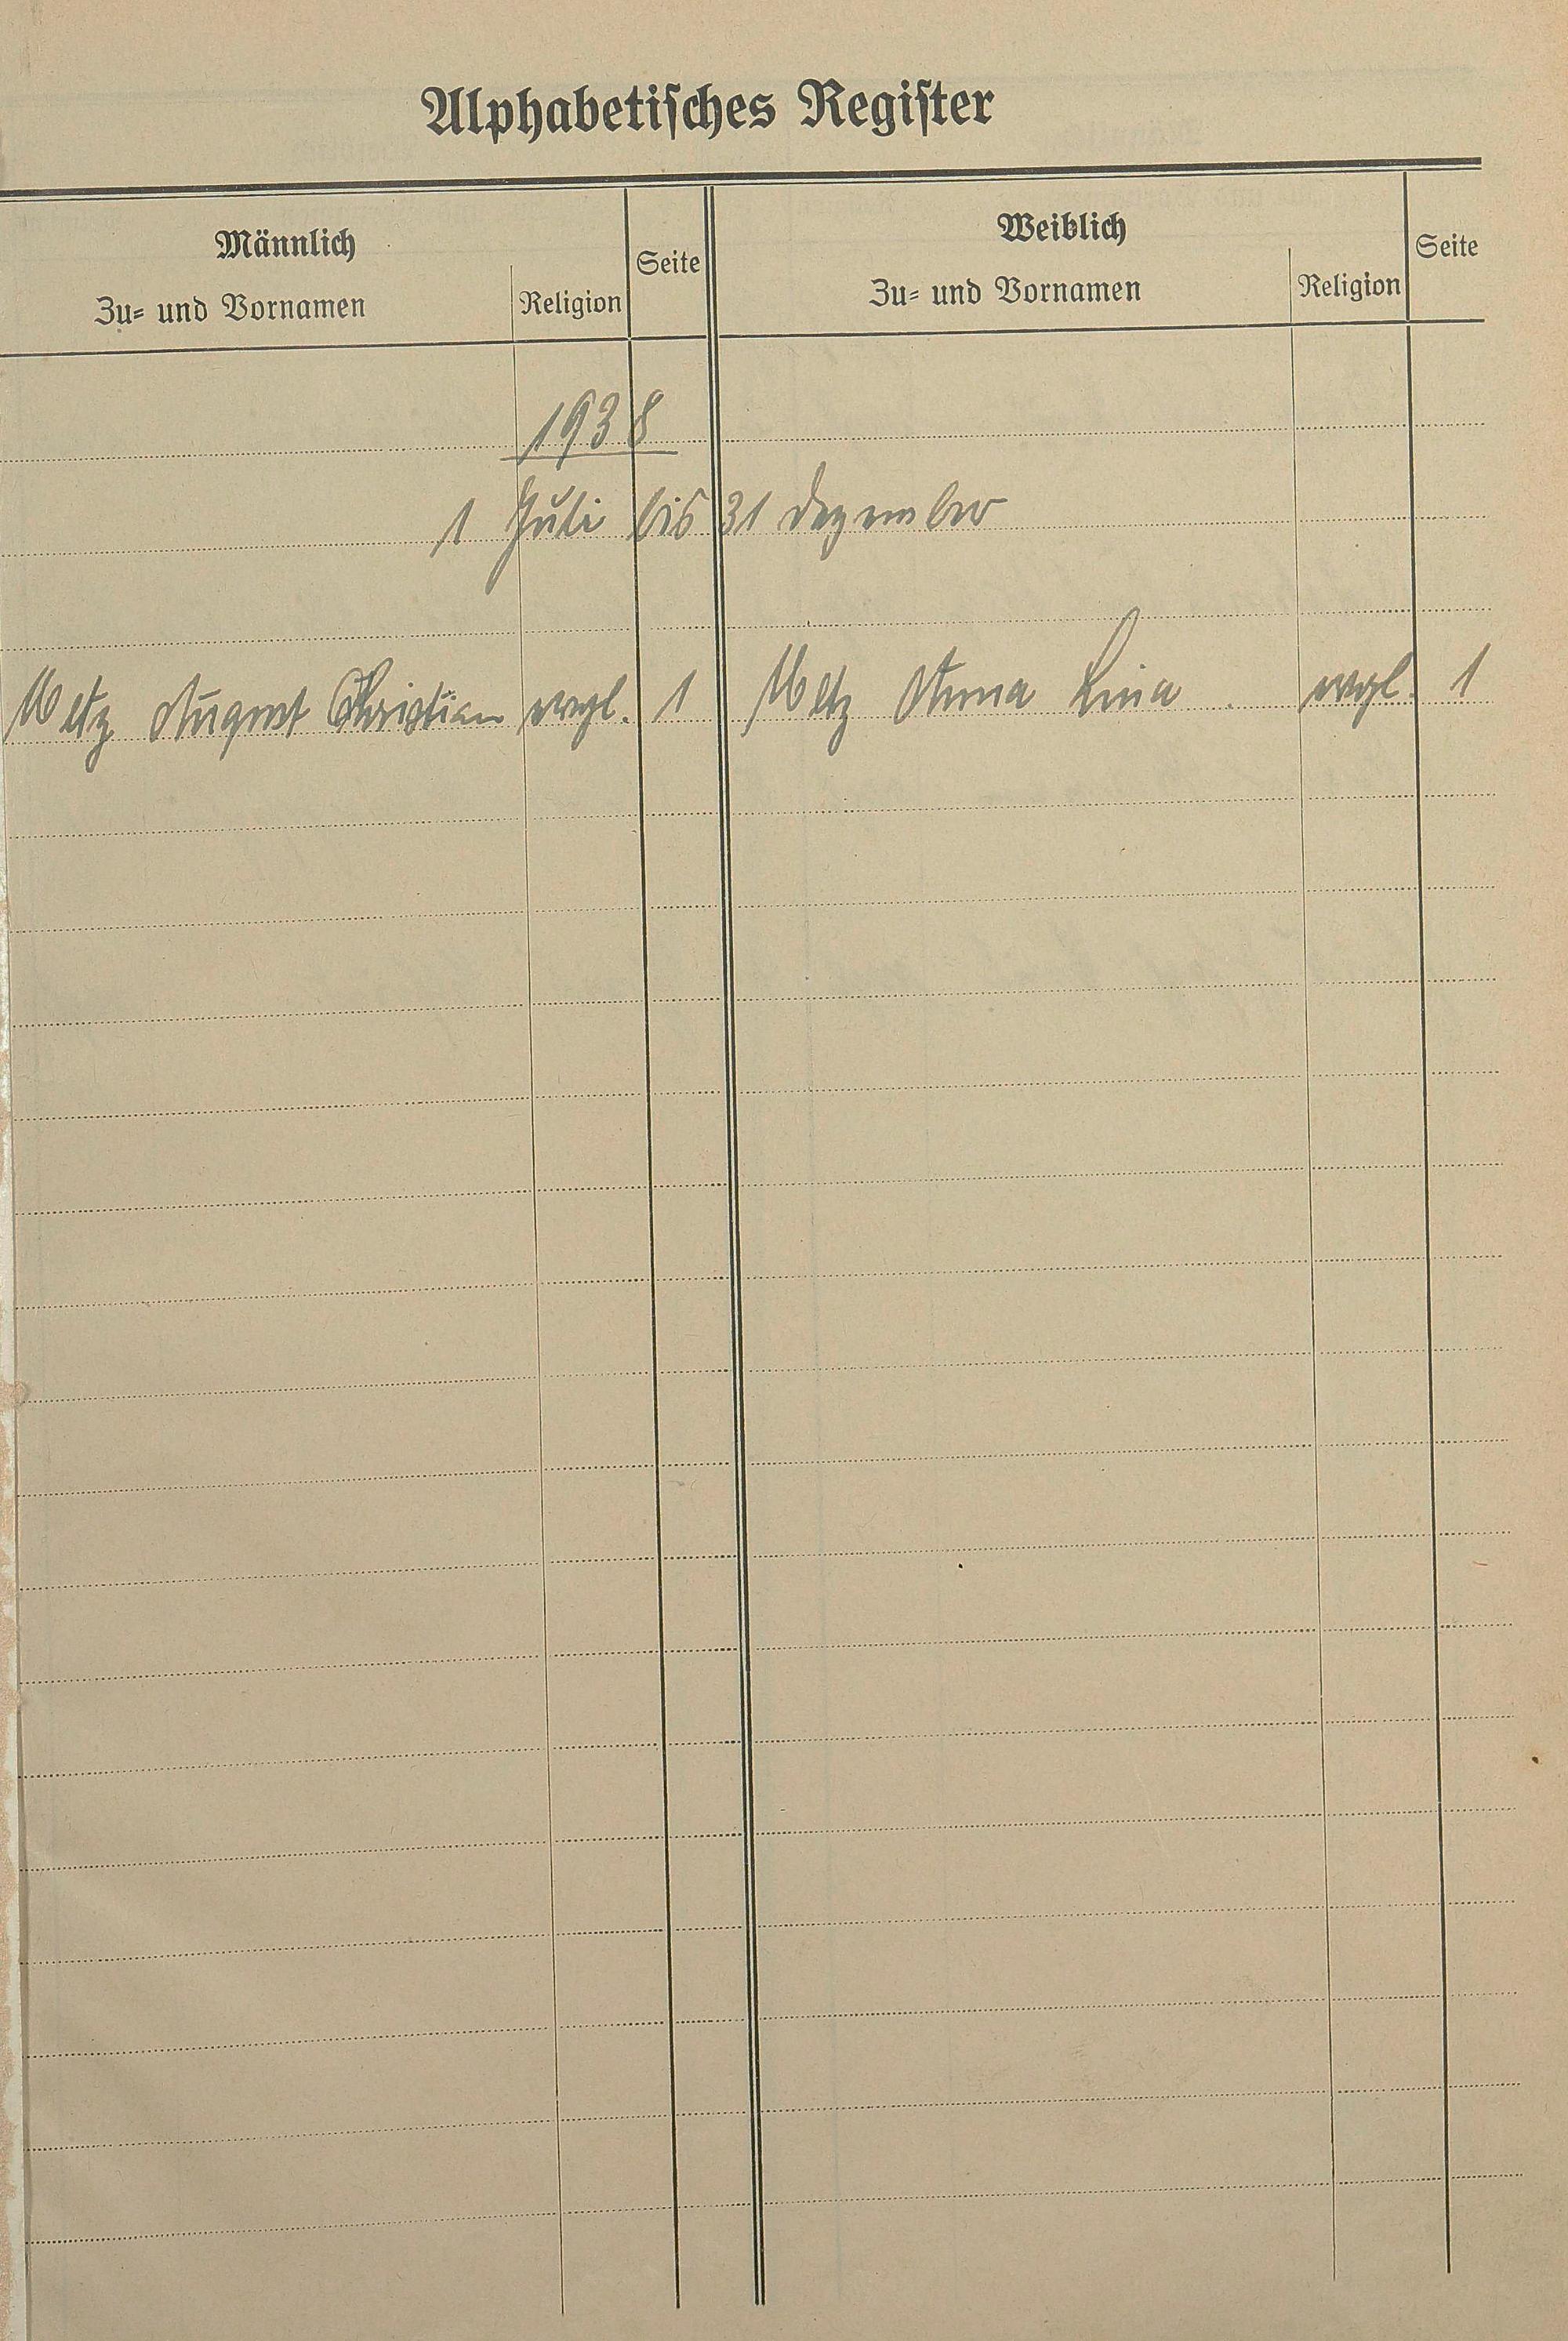 Alphabetisches Register
Männlich Seite Weiblich Seite
Zu= und Vornamen Religion Zu= und Vornamen Religion
1938
1 Juli bis 31 Dezember
Metz August Christian evgl. 1 Metz Anna Lina evgl. 1